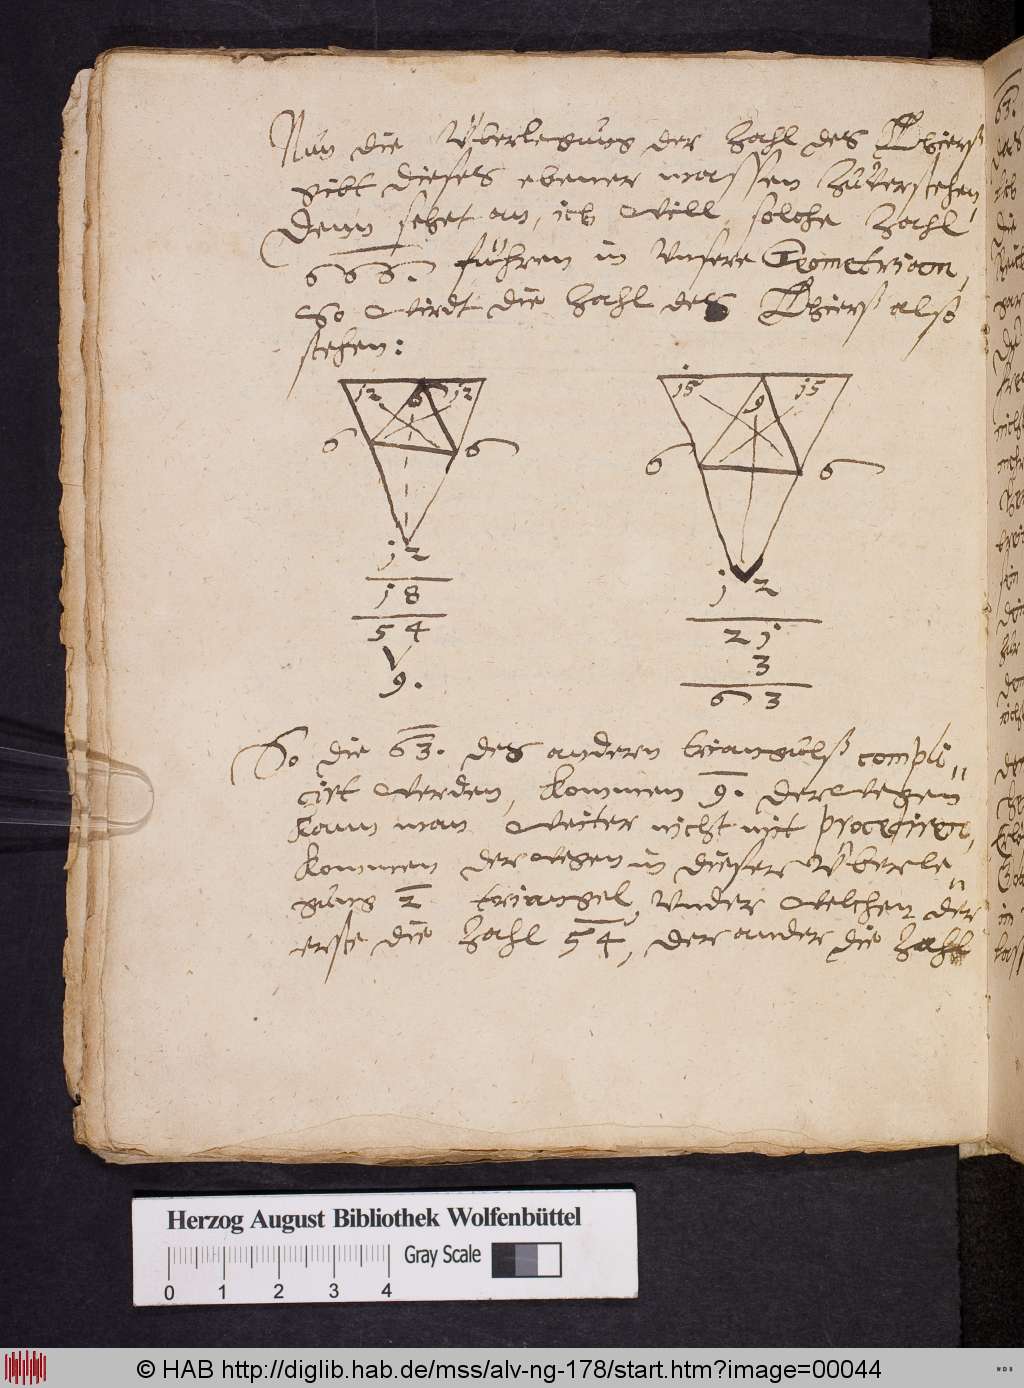 Nun die Vberlegung der Zahl des Thierß
gibt dieses ebener massen zuverstehen,
Denn sehet an, ich will solche Zahl
666. führen in Vnsere Geometriam,
So wirdt die Zahl des Thierß alß
stehen:
12 6 12
6 6
12
18
54
9.
15 9 15
6 6
12
21
3
63
So die 63. des andern triangulß compli„
cirt werden, kommen 9. derwegen
kann man weiter nicht mit procediren,
kommen derwegen in dieser Vberle„
gung 2 triangel, Vnder welchen der
erste die Zahl 54, der ander die Zahl
63.
Herzog August Bibliothek Wolfenbüttel
Gray Scale
0 1 2 3 4
© HAB http://diglib.hab.de/mss/alv-ng-178/start.htm?image=00044